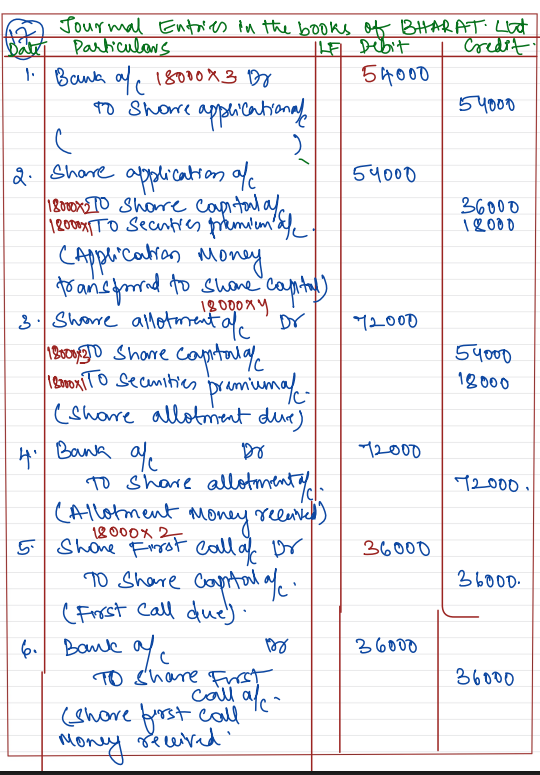 17 Journal Entries in the books of BHARAT. Ltd
Date Particulars LF Debit Credit.
1. Bank a/c 18000 x 3 Dr 54000
To Share application a/c 54000
( )
2. Share application a/c 54000
18000x2 To Share capital a/c 36000
18000x1 To Securities premium a/c. 18000
(Application Money
transferred to Share capital)
18000 x 4
3. Share allotment a/c Dr 72000
18000x3 To Share capital a/c 54000
18000x1 To Securities premium a/c. 18000
(Share allotment due)
4. Bank a/c Dr 72000
To Share allotment a/c. 72000.
(Allotment Money received)
18000 x 2
5. Share First call a/c Dr 36000
To Share Capital a/c. 36000.
(First Call due).
6. Bank a/c Dr 36000
To Share First 36000
call a/c.
(Share first call
Money received.